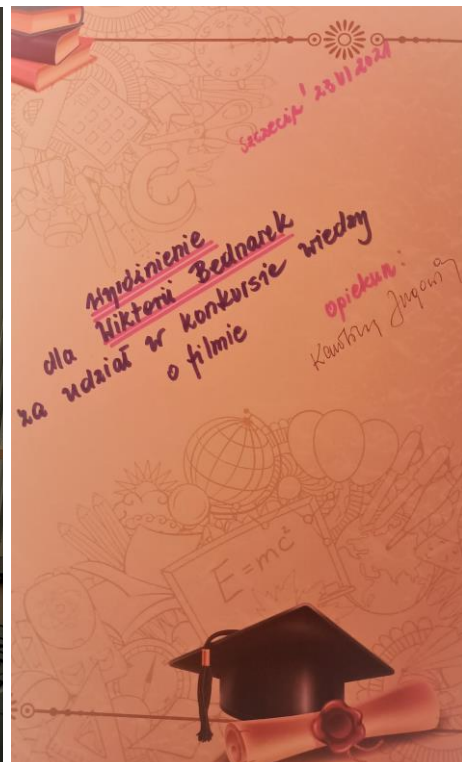 Szczecin 23 VI 2021
Wyróżnienie
dla Wiktorii Bednarek
za udział w konkursie wiedzy
o filmie
opiekun:
E=mc²